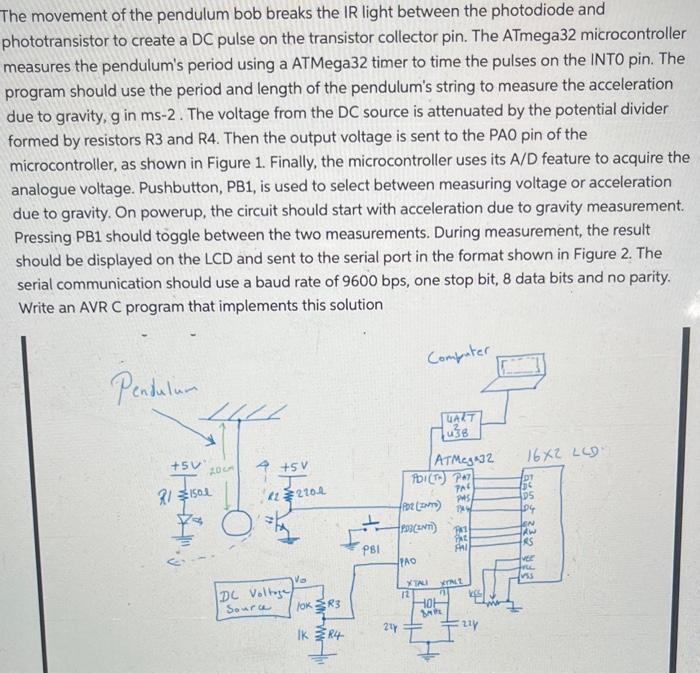 The movement of the pendulum bob breaks the IR light between the photodiode and
phototransistor to create a DC pulse on the transistor collector pin. The ATmega32 microcontroller
measures the pendulum's period using a ATMega32 timer to time the pulses on the INT0 pin. The
program should use the period and length of the pendulum's string to measure the acceleration
due to gravity, g in ms-2 . The voltage from the DC source is attenuated by the potential divider
formed by resistors R3 and R4. Then the output voltage is sent to the PA0 pin of the
microcontroller, as shown in Figure 1. Finally, the microcontroller uses its A/D feature to acquire the
analogue voltage. Pushbutton, PB1, is used to select between measuring voltage or acceleration
due to gravity. On powerup, the circuit should start with acceleration due to gravity measurement.
Pressing PB1 should toggle between the two measurements. During measurement, the result
should be displayed on the LCD and sent to the serial port in the format shown in Figure 2. The
serial communication should use a baud rate of 9600 bps, one stop bit, 8 data bits and no parity.
Write an AVR C program that implements this solution
Computer
Pendulum
UART
2
USB
ATMega32
16x2 LCD
+5V
20cm
+5V
R1
150Ω
R2
220Ω
PD1(Tx)
PA7
PA6
PA5
PA4
D7
D6
D5
D4
PD2(INT0)
PD3(INT1)
PA3
PA2
PA1
EN
RW
RS
PB1
PA0
VEE
VCC
VSS
XTAL1
XTAL2
12
VCC
8MHz
DC Voltage
Source
Vo
10K
R3
1K
R4
22p
22p